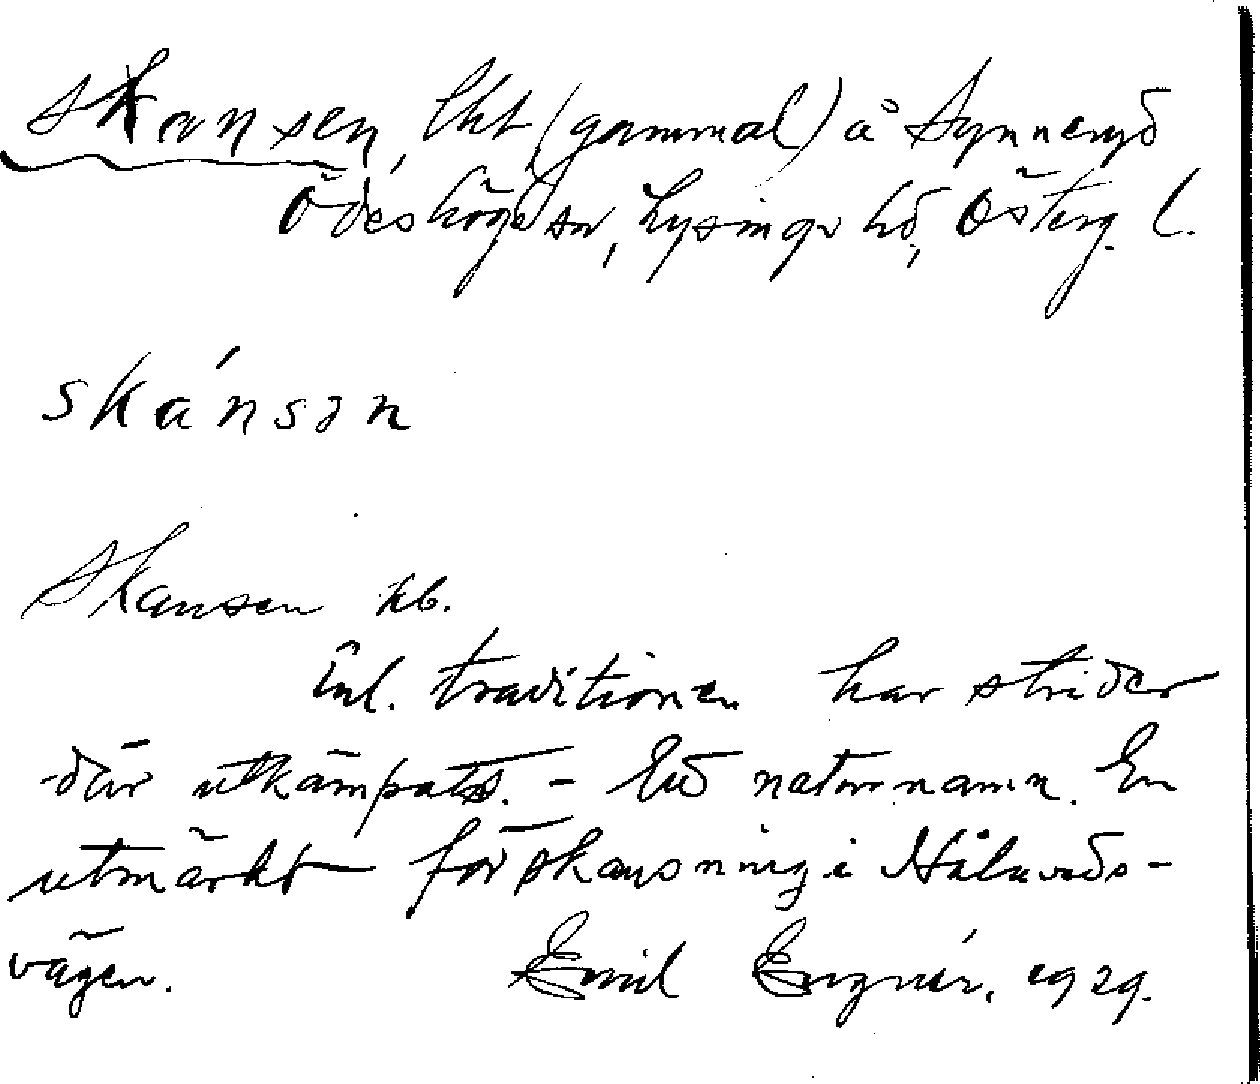 Skansen, lht (gammal) å Synneryd
Ödeshögs sn, Lysings hd, Österg. l.
skánsən
Skansen kb.
Enl. traditionen har strider
där utkämpats. - Ett naturnamn. En
utmärkt förskansning i Hålaveds-
vägen. Emil Engnér, 1929.